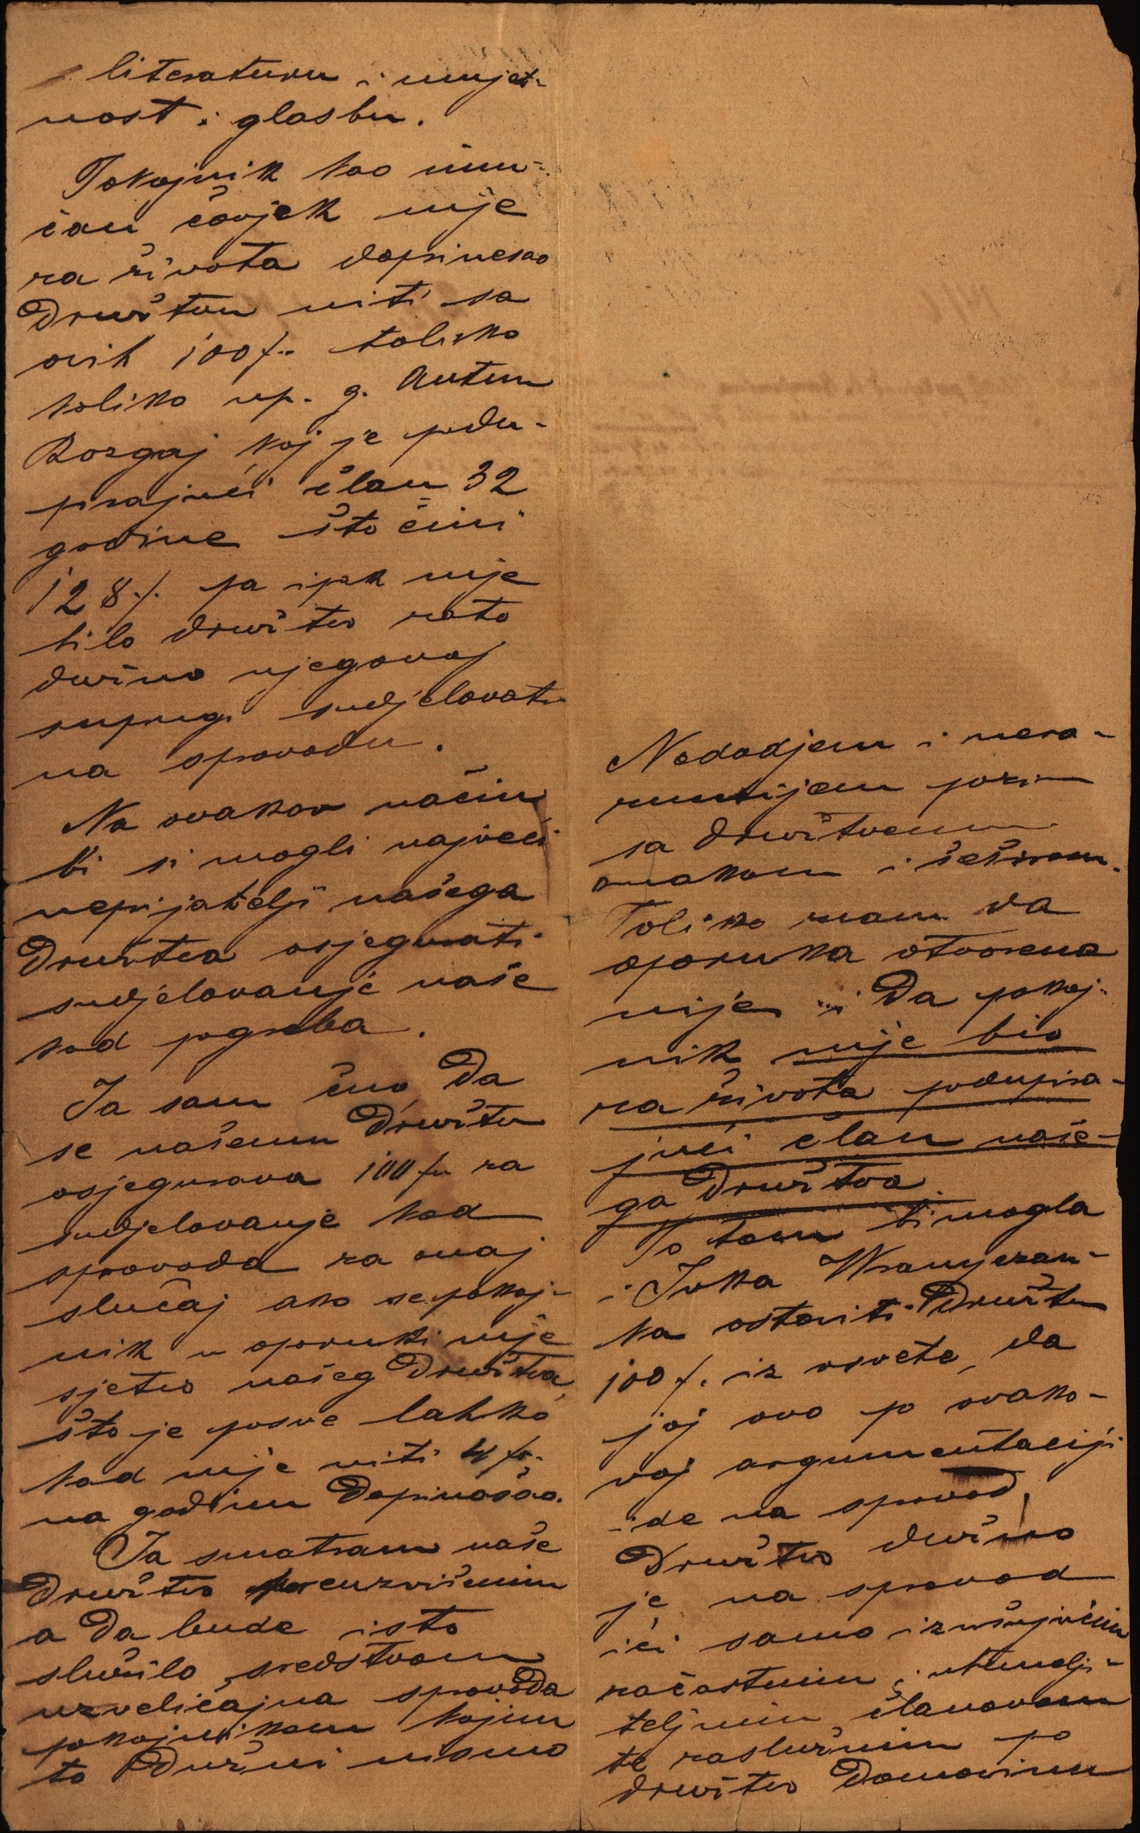 literaturu i umjet-
nost i glasbu.
Pokojnik kao imu-
ćan čovjek nije
za života doprinesao
Društvu niti sa
ovih 100 f. toliko
koliko np. g. Antun
Rozgaj koj je podu-
pirajući član 32
godine što čini
128 f. pa ipak nije
bilo društvo zato
dužno njegovoj
suprugi sudjelovati
na sprovodu.
Na ovakov način
bi si mogli najveći
neprijatelji našega
Društva osjegurati
sudjelovanje naše
kod pogreba.
Ja sam čuo da
se našemu Društvu
osjegurava 100 fr za
sudjelovanje kod
sprovoda za onaj
slučaj ako se pokoj-
nik u oporuki nije
sjetio našeg Društva,
što je posve lahko
kad nije niti 4 fr.
na godinu doprinašao.
Ja smatram naše
Društvo preuzvišenim
a da bude isto
služilo sredstvom
uzveličaj na sprovoda
pokojnikom kojim
to Dužni nismo
Nedodjem i nera-
zumijem poziv
sa društvenim
znakom i šeširom.
Toliko znam da
oporuka otvorena
nije i Da pokoj-
nik nije bio
za života podupira-
jući član naše-
ga Društva
Po tom bi mogla
i Ivka Wranyczan-
ka ostaviti Društvu
100 f. iz osvete, da
joj ovo po ovako-
voj argumentaciji
ide na sprovod.
Društvo dužno
je na sprovod
ići samo izvršujućim
začastnim i utemelji-
teljnim članovom
te zaslužnim po
društvo Domovinu